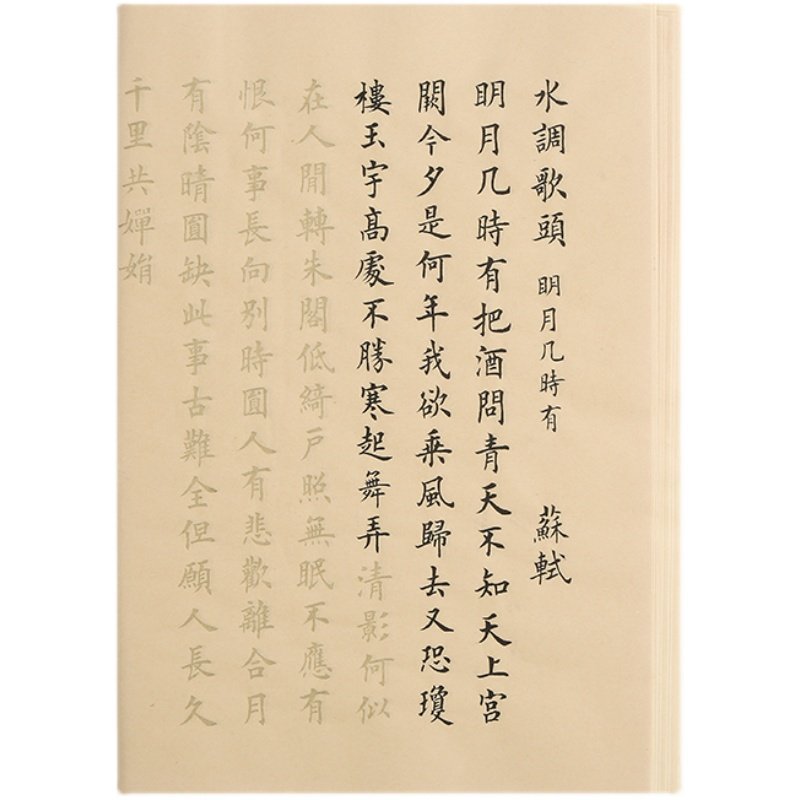 水調歌頭 明月几時有 蘇軾
明月几時有把酒問青天不知天上宮
闕今夕是何年我欲乘風歸去又恐瓊
樓玉宇高處不勝寒起舞弄清影何似
在人間轉朱閣低綺戶照無眠不應有
恨何事長向別時圓人有悲歡離合月
有陰晴圓缺此事古難全但願人長久
千里共嬋娟